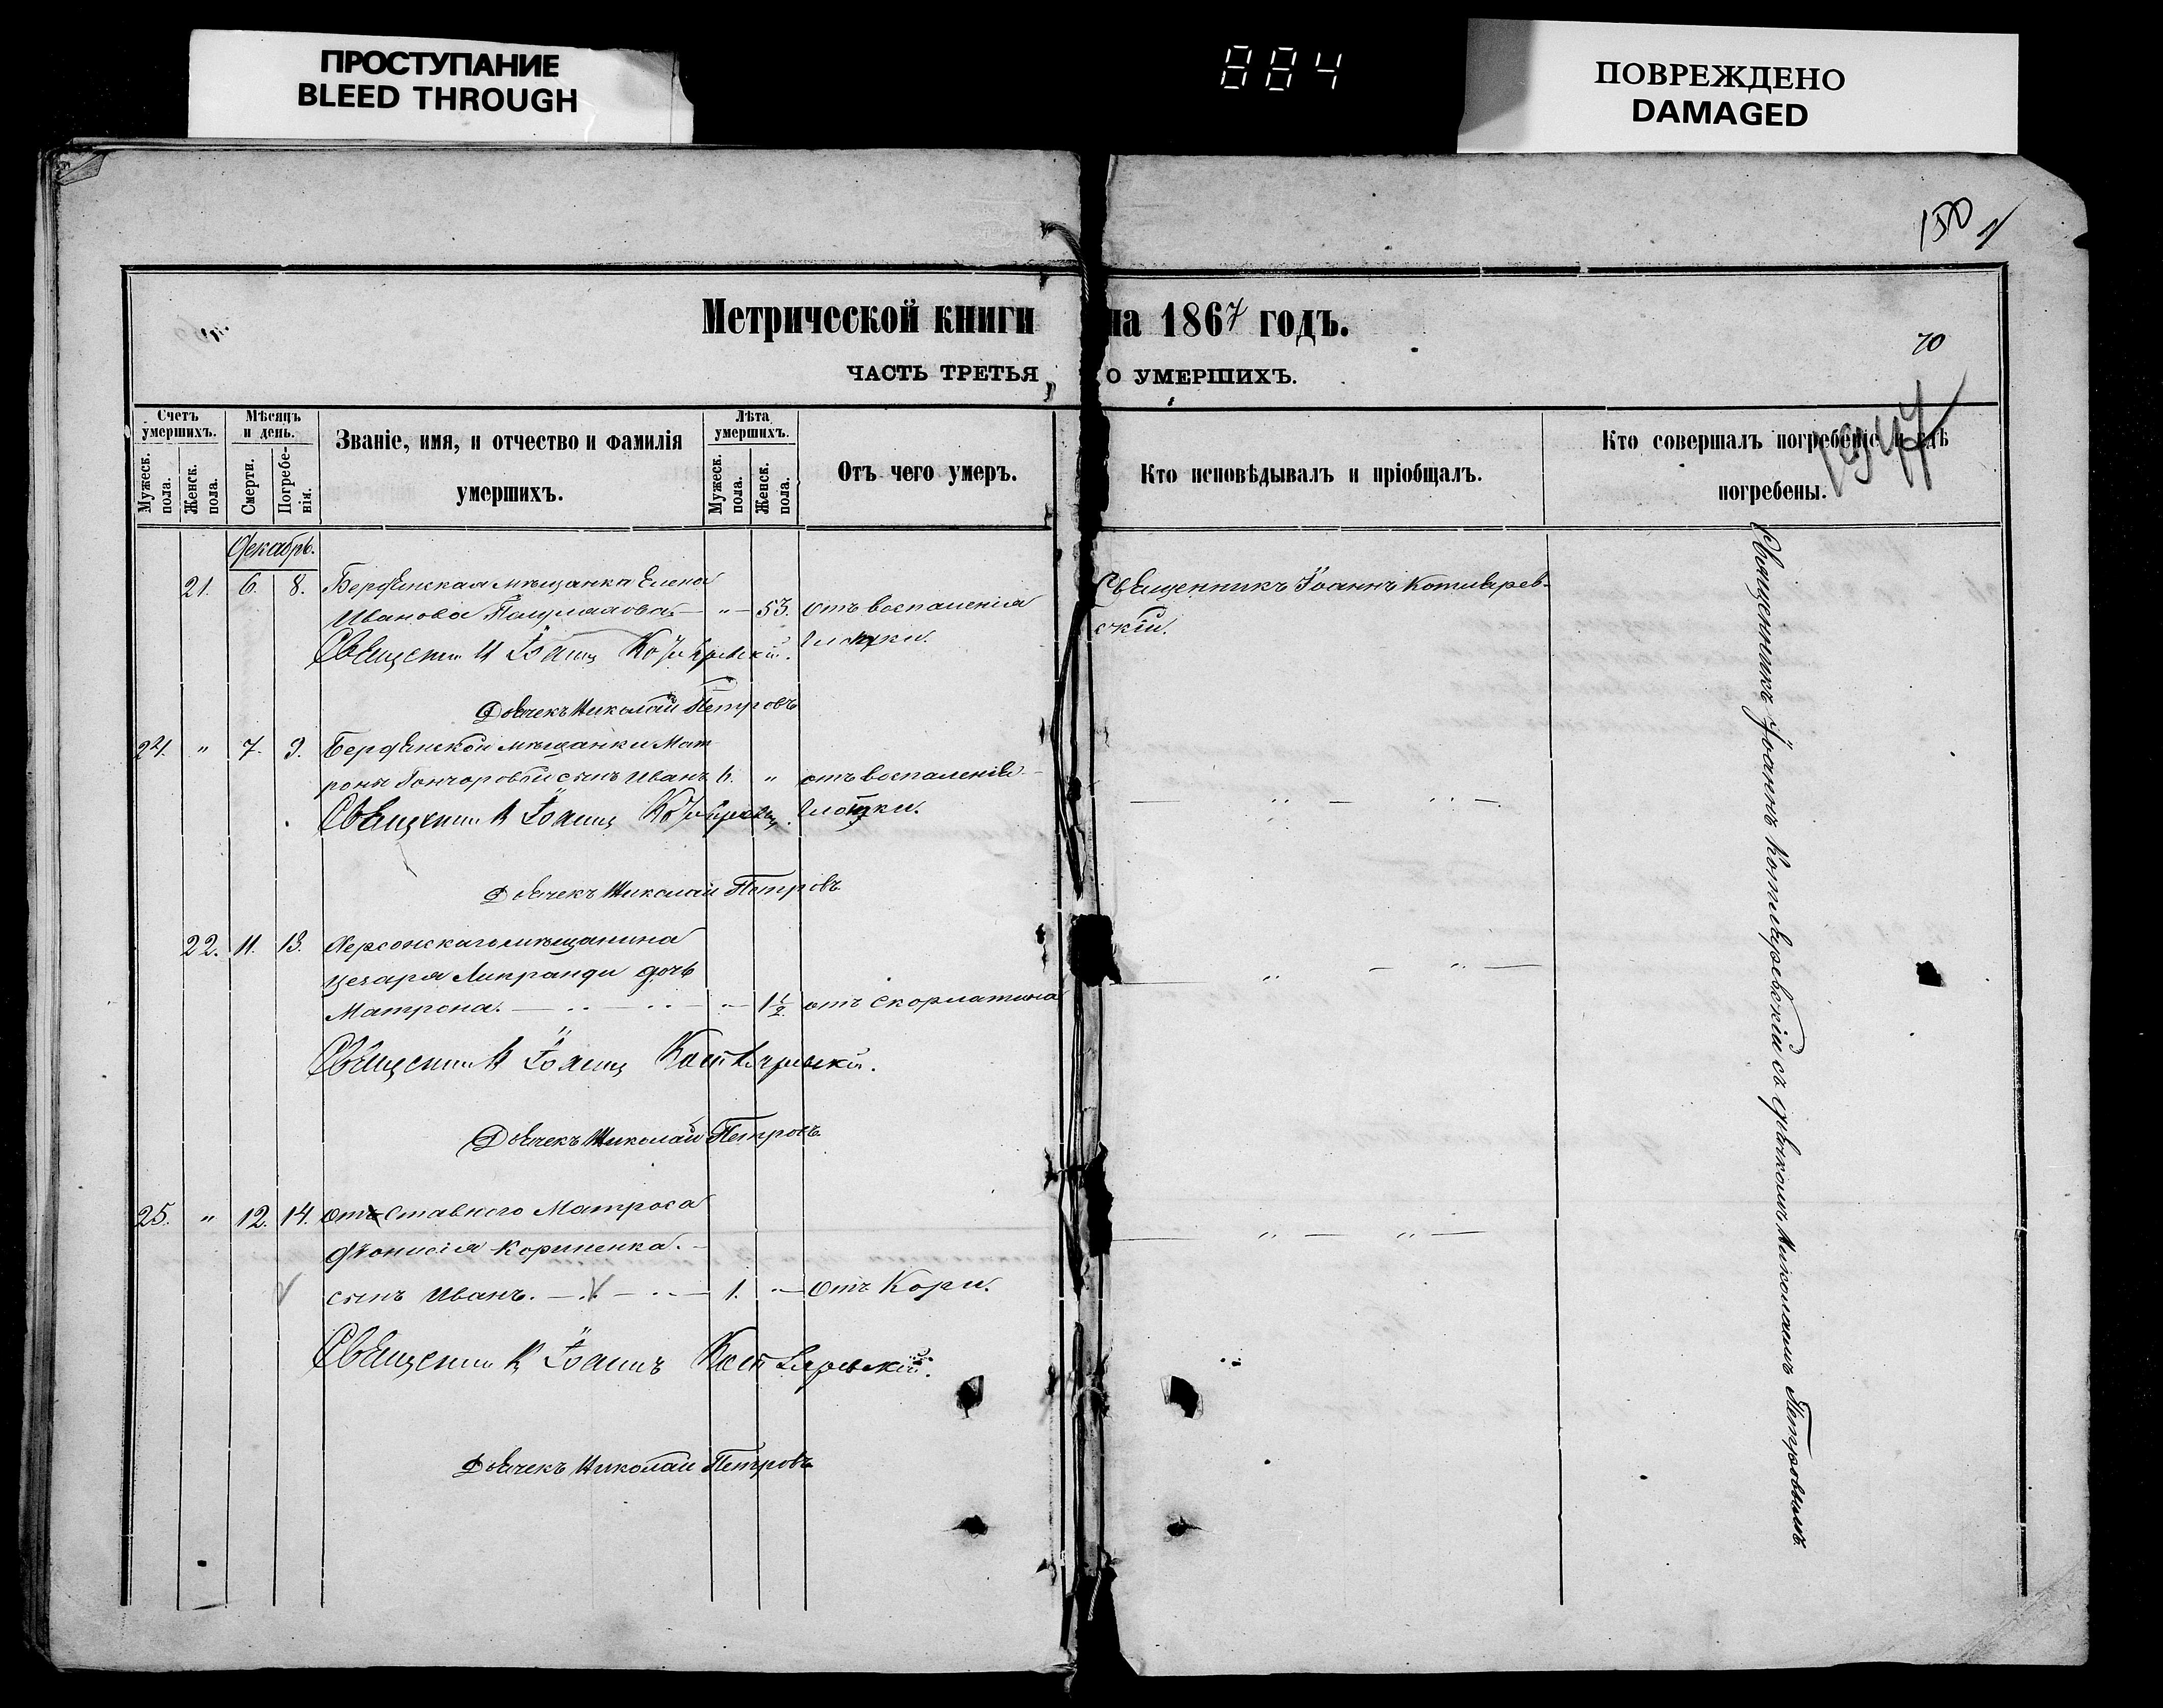 ПРОСТУПАНИЕ
BLEED THROUGH
884
ПОВРЕЖДЕНО
DAMAGED
150
Метрической книги на 1867 годъ.
70
ЧАСТЬ ТРЕТЬЯ, О УМЕРШИХЪ.
Счетъ умершихъ.
Мужеск. пола.
Женск. пола.
Мѣсяцъ и день.
Смерти.
Погребенія.
Званіе, имя, и отчество и фамилія
умершихъ.
Лѣта умершихъ.
Мужеск. пола.
Женск. пола.
Отъ чего умеръ.
Кто исповѣдывалъ и пріобщалъ.
Кто совершалъ погребеніе и гдѣ
погребены.
Декабрь.
21. 6. 8. Бердянская мѣщанка Елена
Иванова — " — 53. отъ воспаленія
глотки.
Священникъ Іоаннъ Котляревскій.
Священникъ Іоаннъ Котлярев-
скій.
Дьячекъ Николай Петровъ
24. " 7. 9. Бердянской мѣщанки Мат
роны Гончаровой сынъ Иванъ 6. " отъ воспаленія
глотки.
Священникъ Іоаннъ Котляревскій.
Дьячекъ Николай Петровъ
22. 11. 13. Херсонскаго мѣщанина
Цезаря Липранди дочь
Матрона. — " — 1 1/2 отъ скорлатина
Священникъ Іоаннъ Котляревскій.
Дьячекъ Николай Петровъ
25. " 12. 14. Отъставного Матроса
Діонисія Корниенка.
сынъ Иванъ. — 1. " — Отъ Кори.
Священникъ Іоаннъ Котляревскій.
Дьячекъ Николай Петровъ
Священникъ Іоаннъ Котляревскій съ дьячкомъ Николаемъ Петровымъ